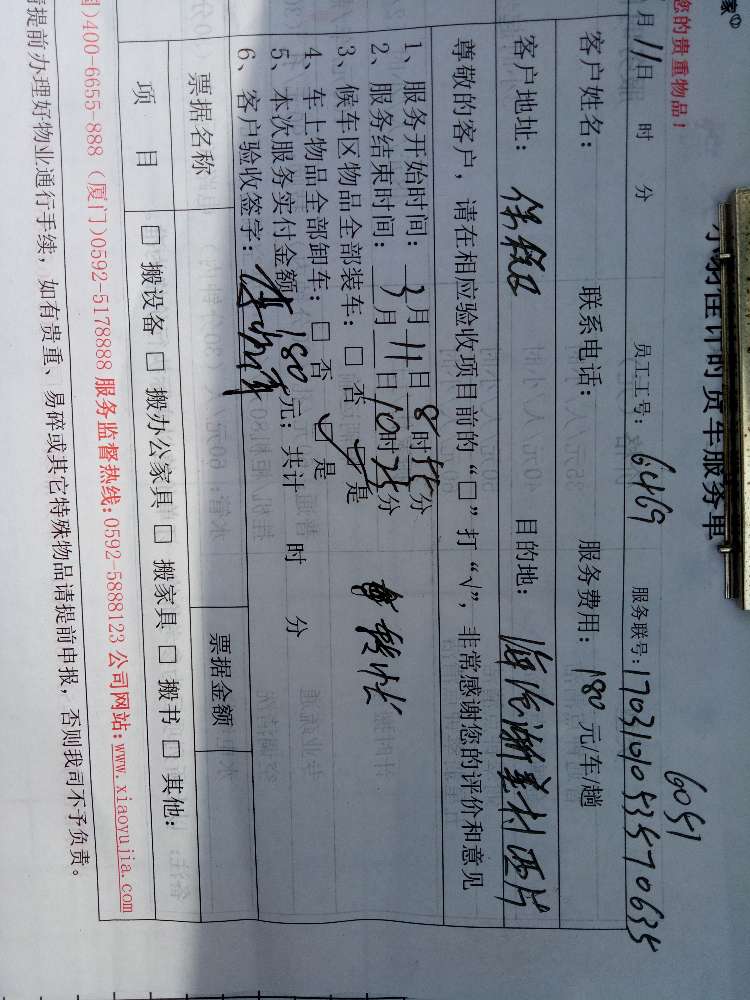 家®
小羽佳计时货车服务单
您的贵重物品！
6051
月11日 时 分 员工工号：6469 服务联号：
客户姓名： 联系电话： 服务费用：180元/车/趟
客户地址：保税区 目的地：
尊敬的客户，请在相应验收项目前的“□”打“√”，非常感谢您的评价和意见
1、服务开始时间：3月11日8时55分
2、服务结束时间：3月11日10时25分
3、候车区物品全部装车：□否 ☑是
4、车上物品全部卸车：□否 ☑是
5、本次服务实付金额180元；共计 时 分
6、客户验收签字：
票据名称 票据金额
项目 □搬设备 □搬办公家具 □搬家具 □搬书 □其他：
)400-6655-888 (厦门)0592-5178888 服务监督热线:0592-5888123 公司网站:www.xiaoyujia.com
请提前办理好物业通行手续，如有贵重、易碎或其它特殊物品请提前申报，否则我司不予负责。